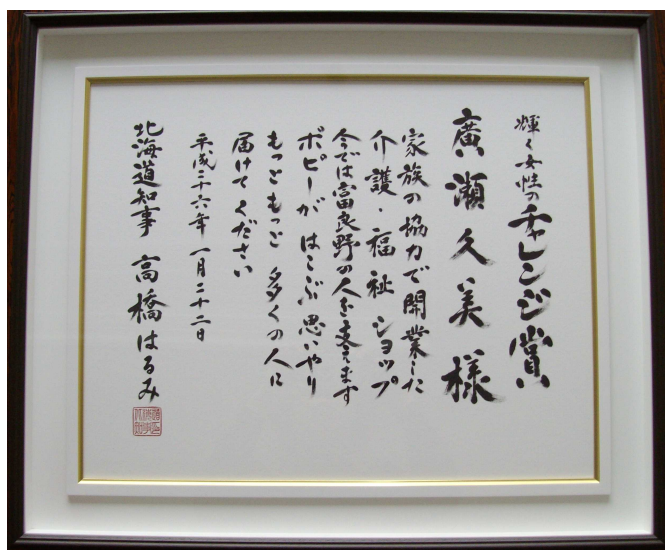 輝く女性のチャレンジ賞
廣瀬久美様
家族の協力で開業した
介護・福祉ショップ
今では富良野の人を支えます
ポピーがはこぶ思いやり
もっともっと多くの人に
届けてください
平成二十六年一月二十二日
北海道知事 高橋はるみ